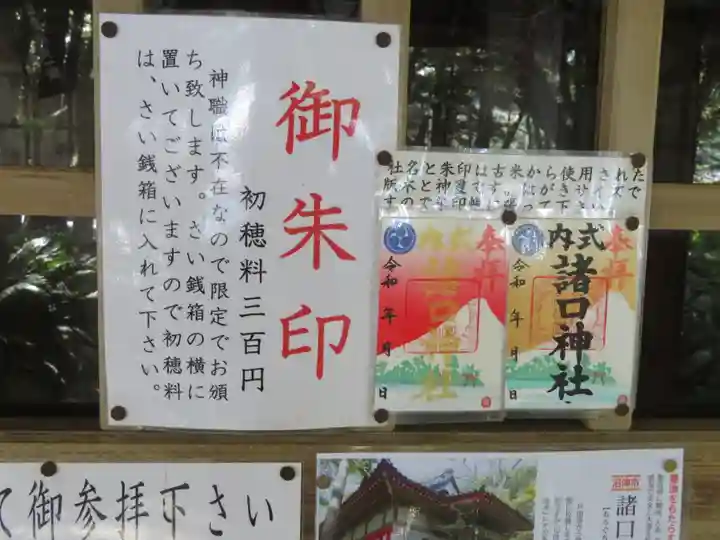 御朱印
初穂料三百円
神職は不在なので限定でお頒
ち致します。さい銭箱の横に
置いてございますので初穂料
は、さい銭箱に入れて下さい。
社名と朱印は古来から使用された
奉拝
式内
諸口神社
令和 年 月 日
奉拝
式内
諸口神社
令和 年 月 日
て御参拝下さい
沼津市
諸口